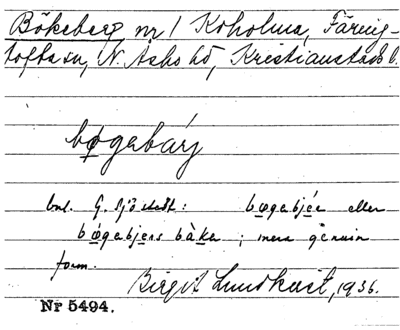 Bökeberg nr 1 Koholma, Färing-
tofta sn, N. Åsbo hd, Kristianstads l.
bøgebárj
enl. G. Sjöstedt: bøgebjér eller
bøgebjers bàka; mera genuin
form.
Birgit Lundkvist, 1936.
Nr 5494.